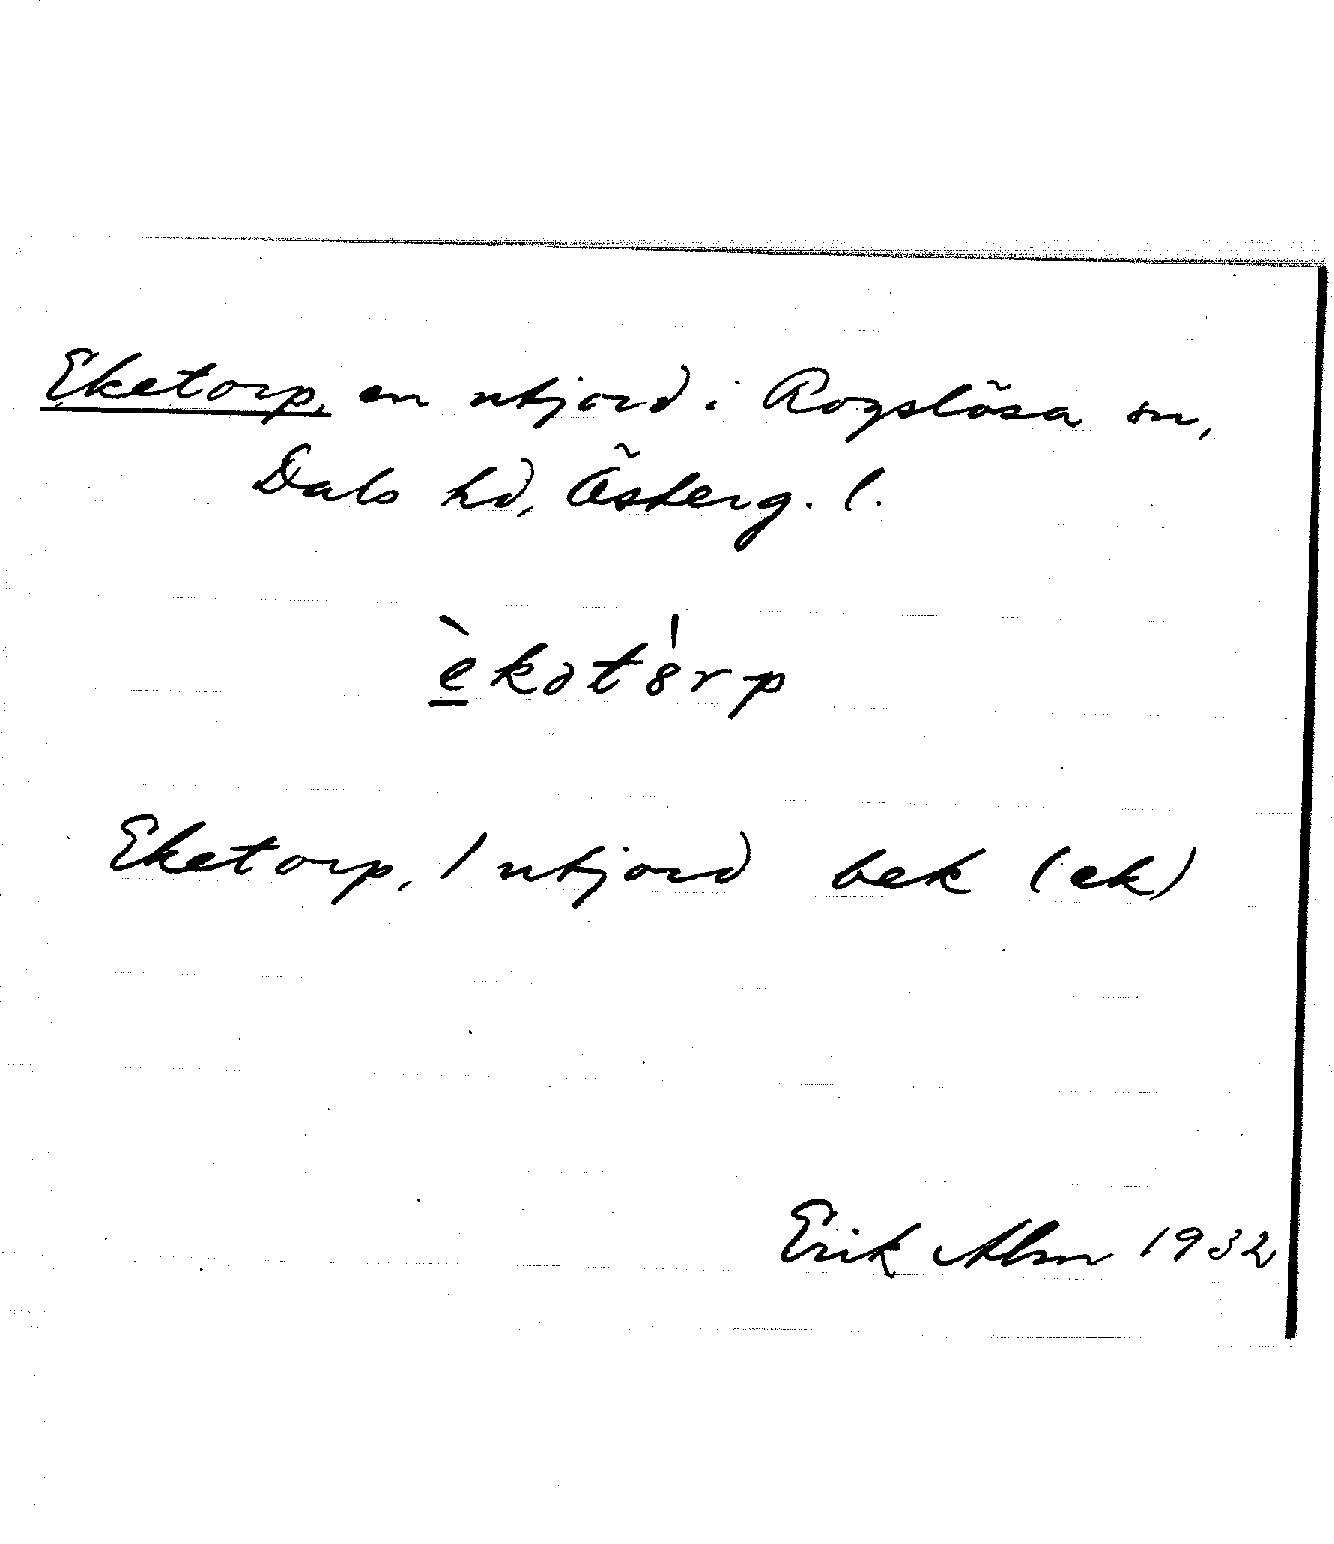 Eketorp, en utjord i Rogslösa sn,
Dals hd, Österg. l.
èkət8́rp
Eketorp, 1 utjord bek (ek)
Erik Alm 1932